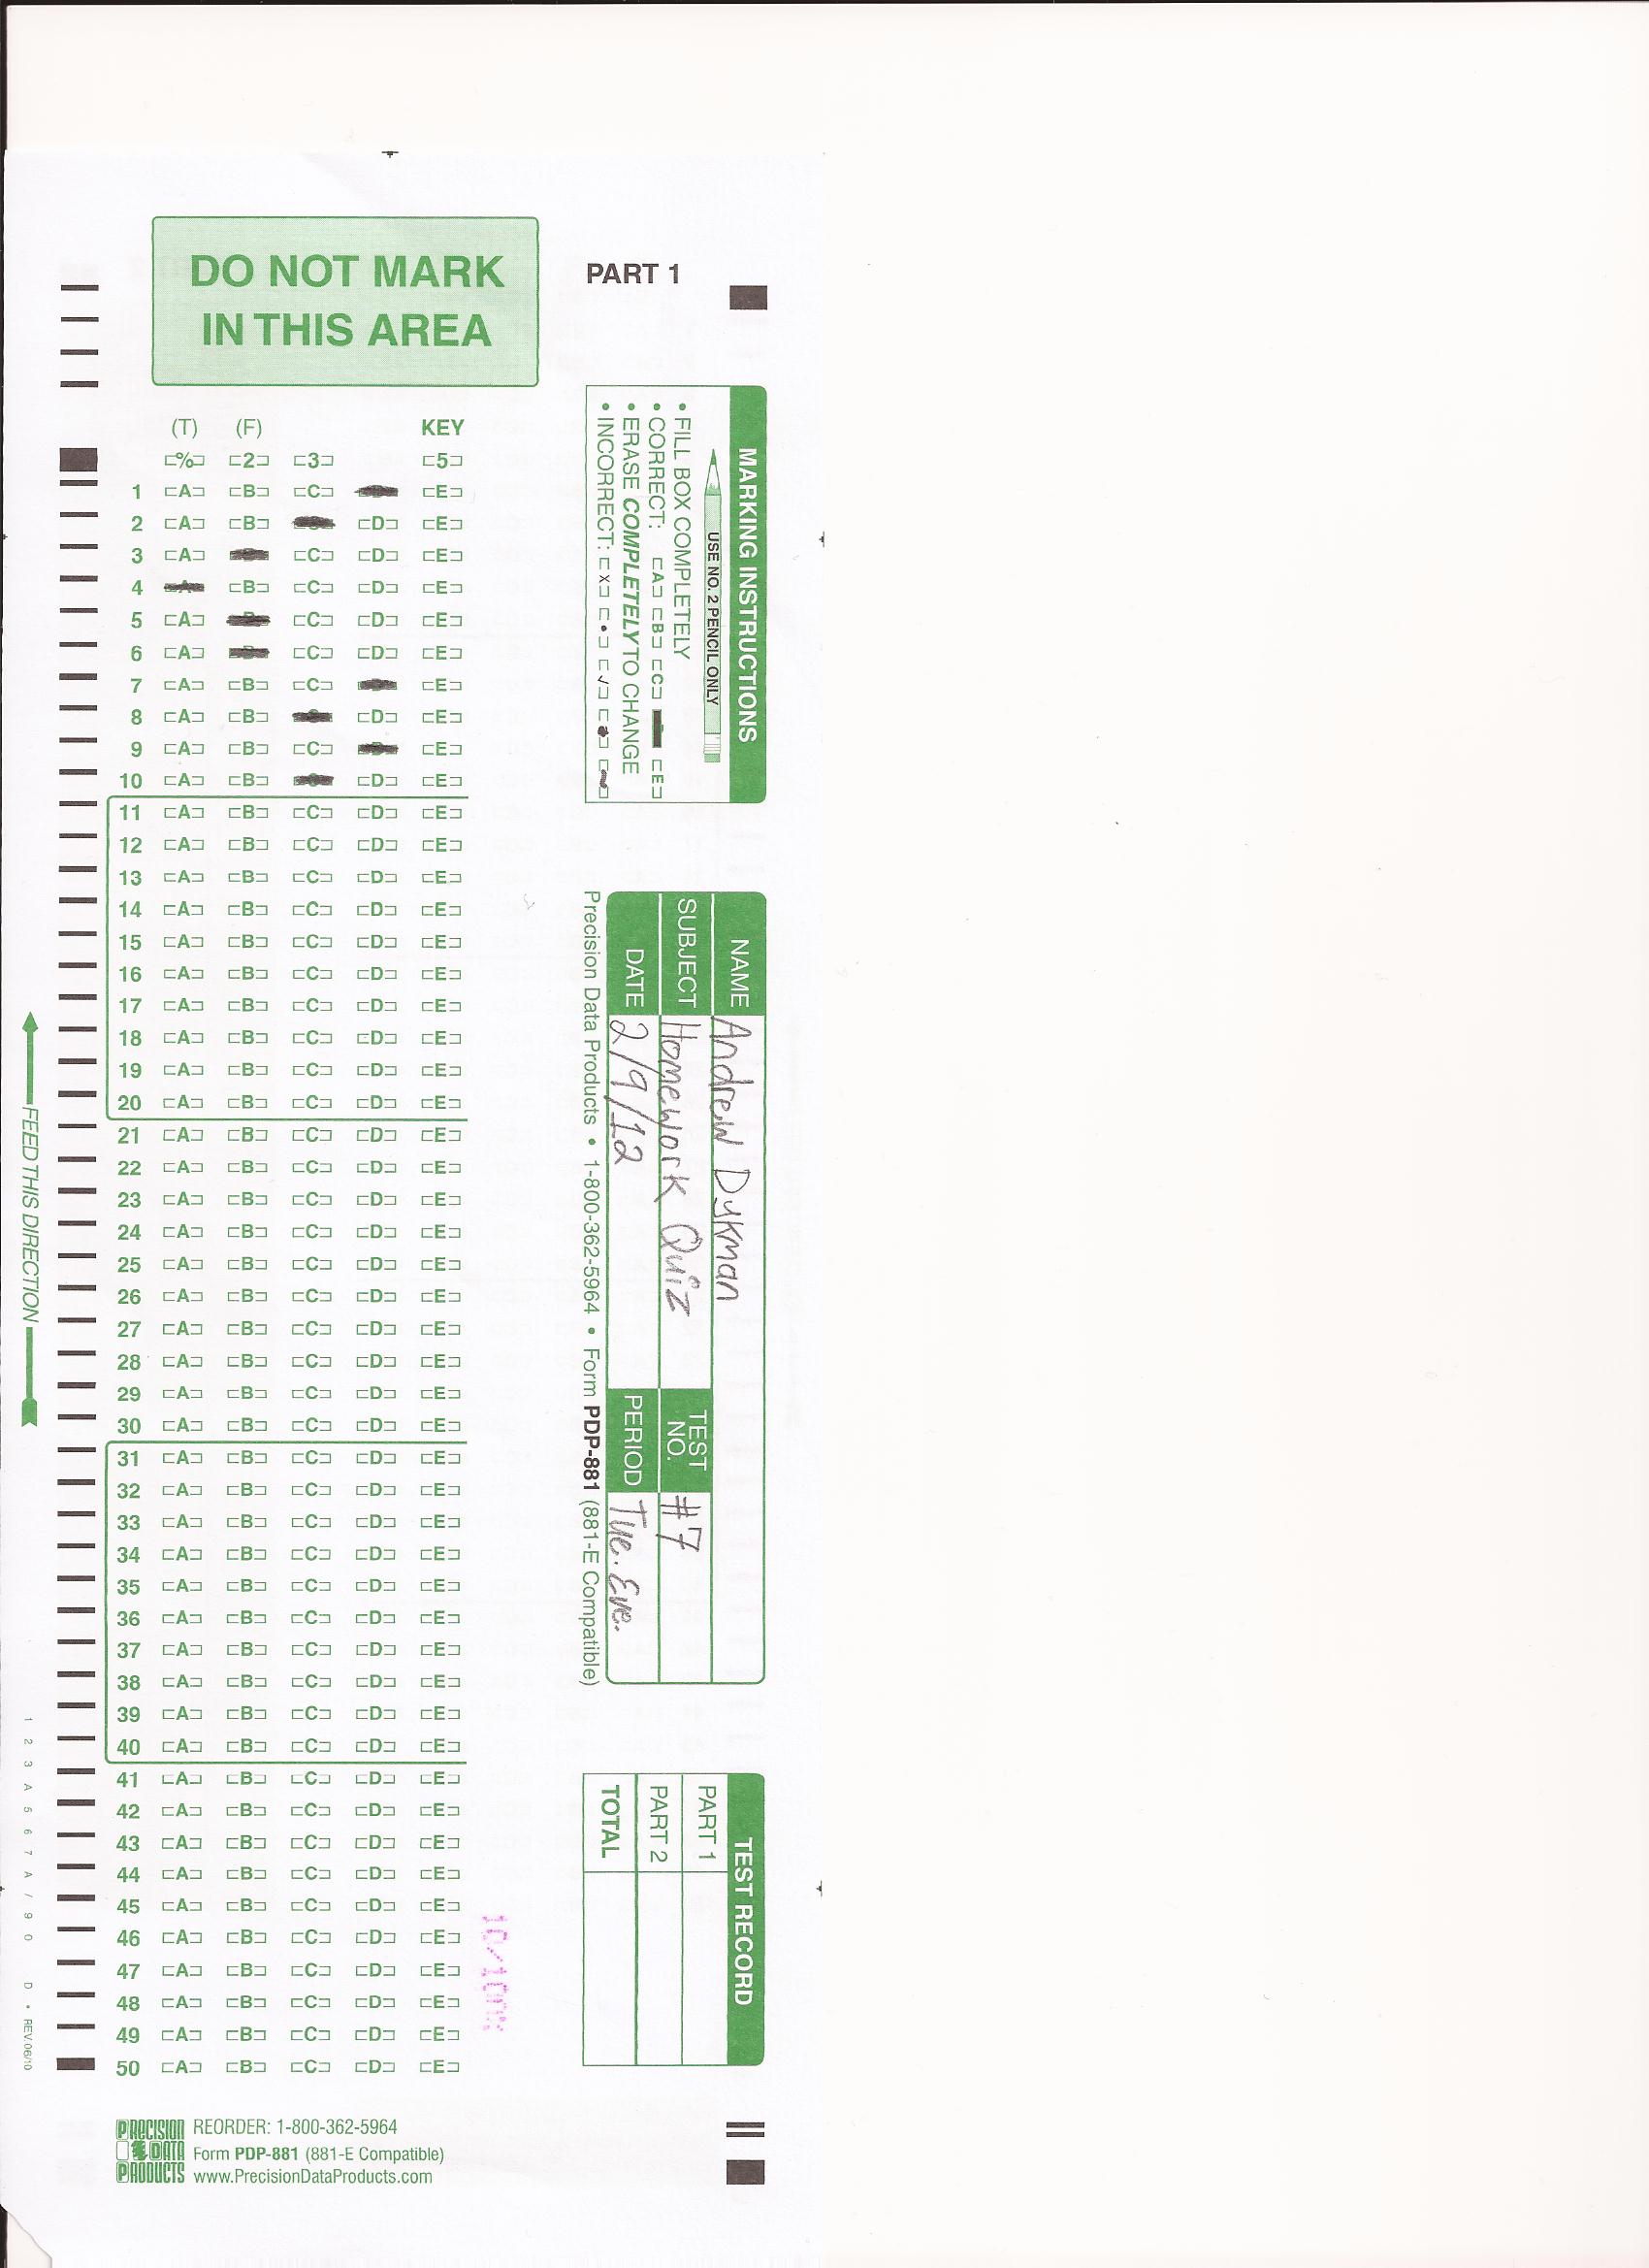 DO NOT MARK
IN THIS AREA
PART 1
(T) (F) KEY
% 2 3 5
1 A B C E
2 A B D E
3 A C D E
4 A B C D E
5 A C D E
6 A C D E
7 A B C E
8 A B D E
9 A B C D E
10 A B D E
11 A B C D E
12 A B C D E
13 A B C D E
14 A B C D E
15 A B C D E
16 A B C D E
17 A B C D E
18 A B C D E
19 A B C D E
20 A B C D E
21 A B C D E
22 A B C D E
23 A B C D E
24 A B C D E
25 A B C D E
26 A B C D E
27 A B C D E
28 A B C D E
29 A B C D E
30 A B C D E
31 A B C D E
32 A B C D E
33 A B C D E
34 A B C D E
35 A B C D E
36 A B C D E
37 A B C D E
38 A B C D E
39 A B C D E
40 A B C D E
41 A B C D E
42 A B C D E
43 A B C D E
44 A B C D E
45 A B C D E
46 A B C D E
47 A B C D E
48 A B C D E
49 A B C D E
50 A B C D E
MARKING INSTRUCTIONS
USE NO. 2 PENCIL ONLY
• FILL BOX COMPLETELY
• CORRECT: A B C E
• ERASE COMPLETELY TO CHANGE
• INCORRECT:
NAME Andrew Dykman
SUBJECT Homework Quiz TEST NO. #7
DATE 2/9/12 PERIOD Tue. Eve.
Precision Data Products • 1-800-362-5964 • Form PDP-881 (881-E Compatible)
TEST RECORD
PART 1
PART 2
TOTAL
FEED THIS DIRECTION
1 2 3 A 5 6 7 A / 9 0 D • REV.06/10
PRECISION DATA PRODUCTS
REORDER: 1-800-362-5964
Form PDP-881 (881-E Compatible)
www.PrecisionDataProducts.com